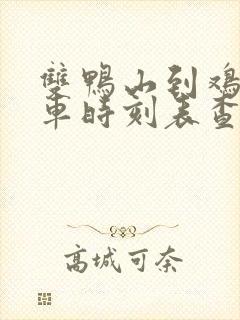 雙鴨山到鸡
車時刻表查
高城可奈